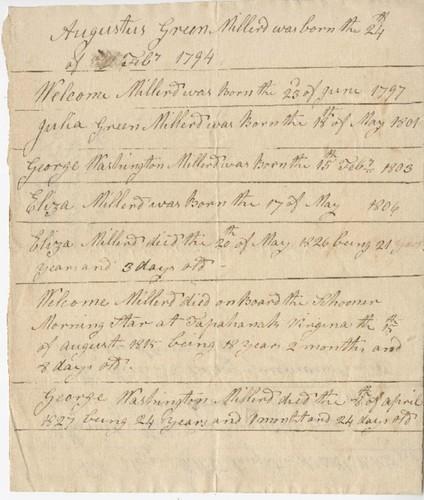 Augustus Green Millerd was born the 24th
of Feby 1794
Welcome Millerd was Born the 23d of june 1797
Julia Green Millerd was Born the 18th of May 1801
George Washington Millerd was Born the 15th Feby 1803
Eliza Millerd was Born the 17 of May 1806
Eliza Millerd died the 20th of May 1826 being 21
years and 3 days old
Welcome Millerd died on Board the Schooner
Morning Star at Tapahanak Virgina the
of august 1815 being 18 years 2 months and
days old
George Washington Millerd died the of april
1827 being 24 years and 1 month and 24 days old